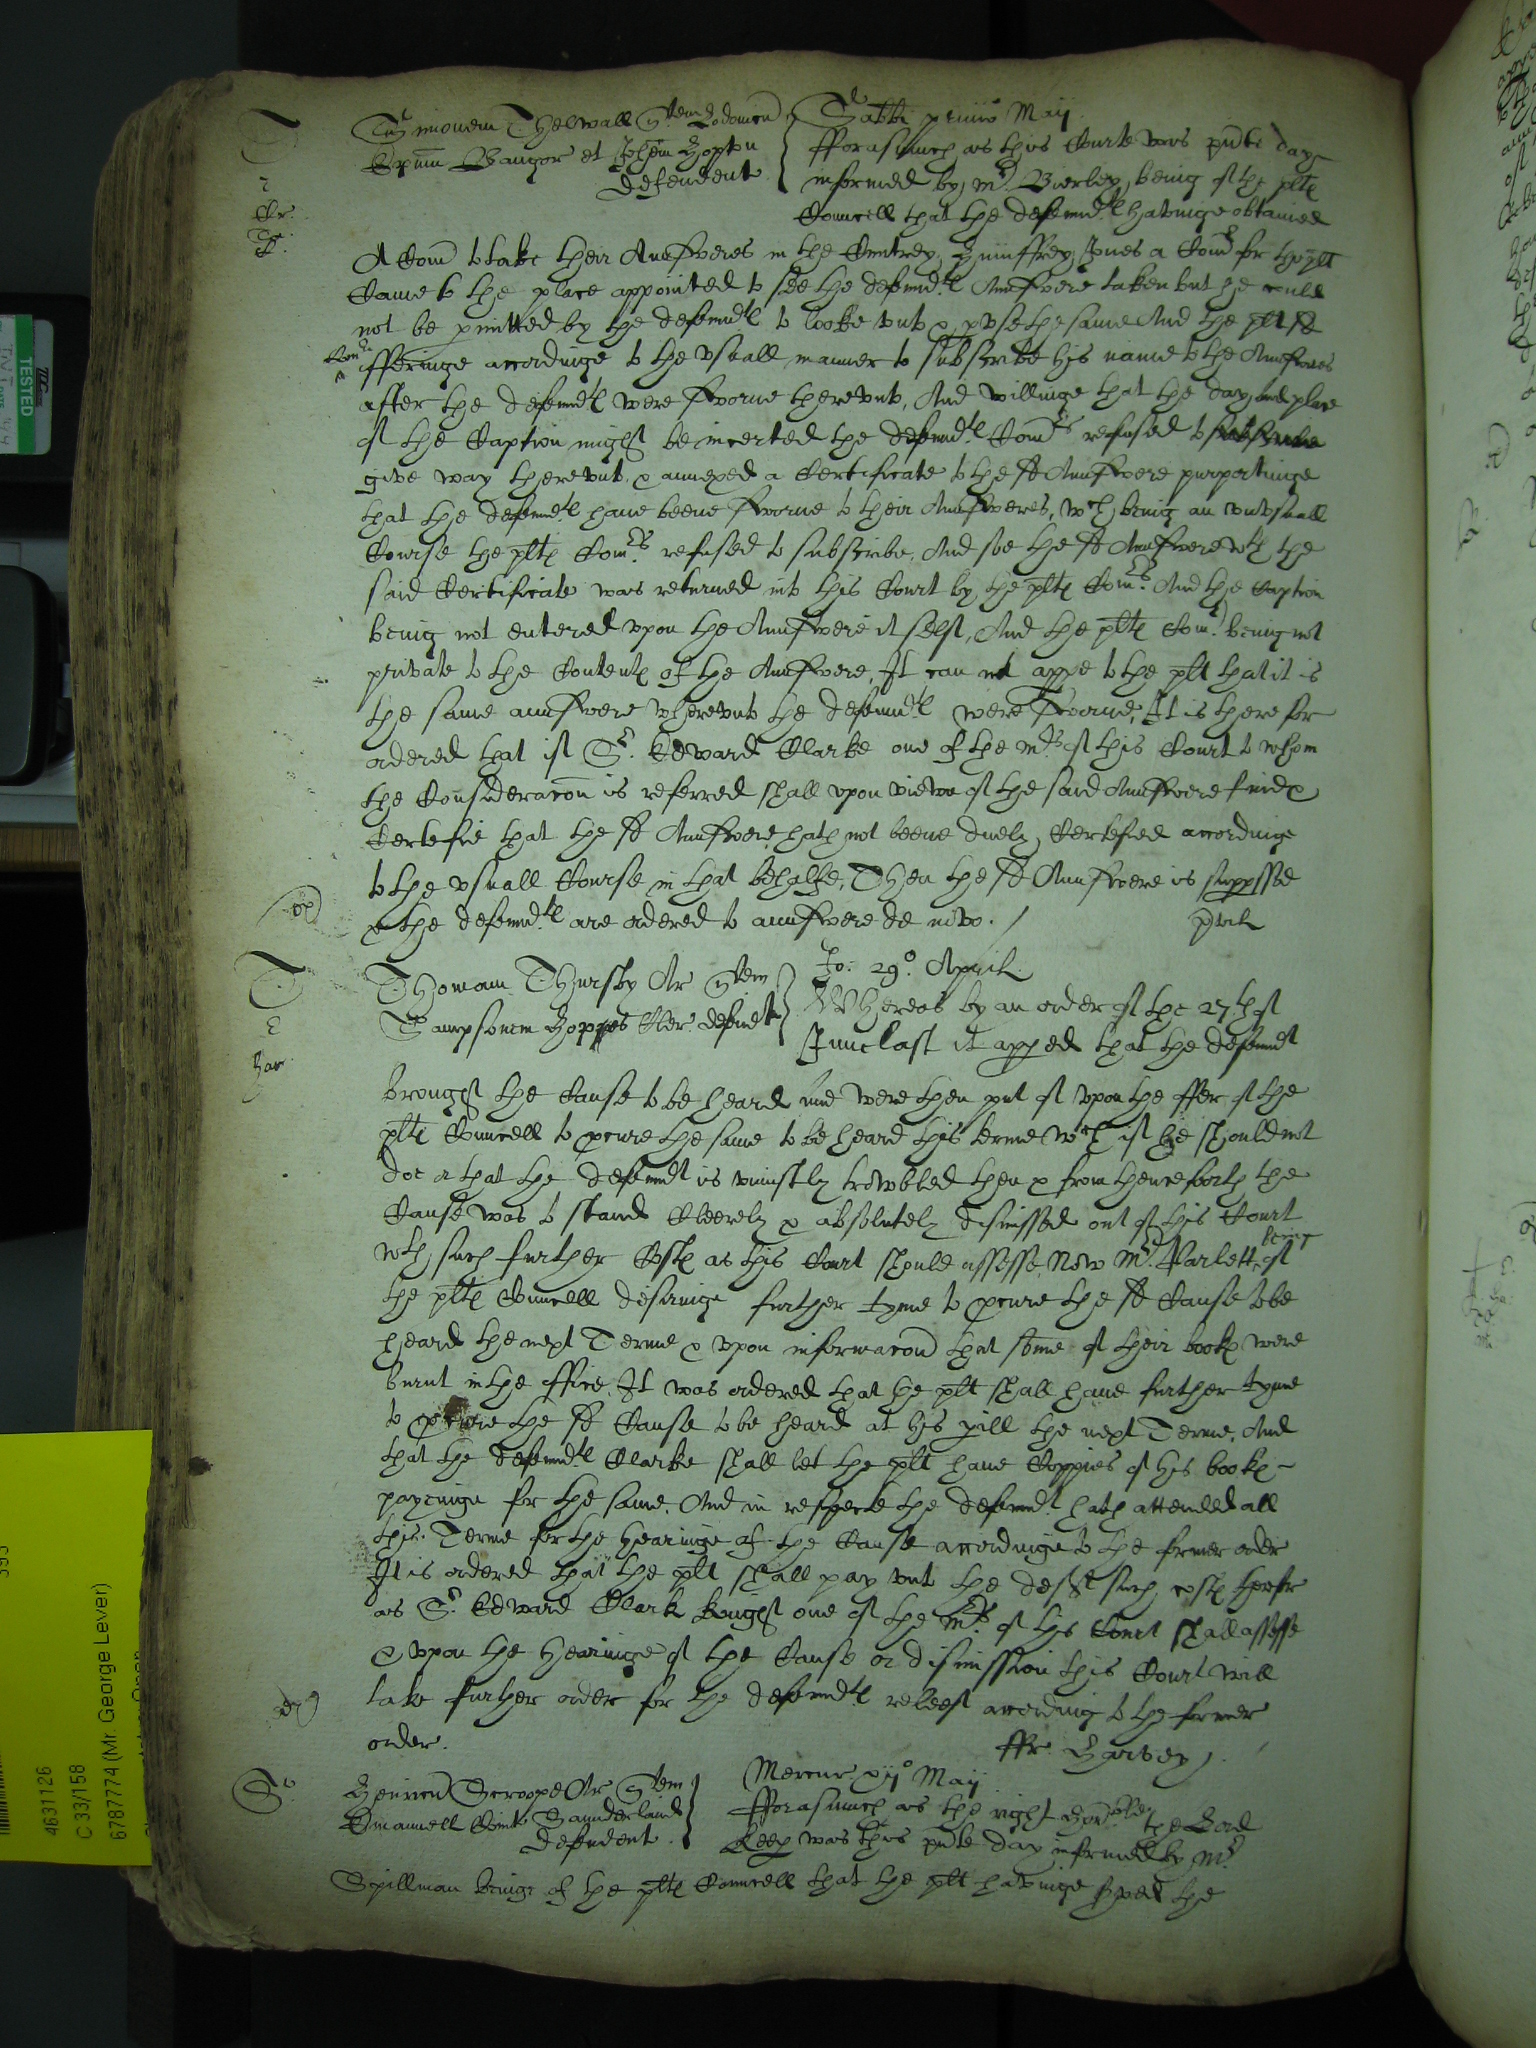 T
Simonem Thelwall quer Lodovicu
Epum Bangor et Johem Hopton
defendent
Sabbi primo Maij
Fforasmuch as this Courte was pnte day
informed by Mr Bierley being of the plts
Councell that the defendts havinge obtained
A Com to take their Aunsweres in the Countrey, Humffrey Jones a Comr for the plt
Came to the place appointed to see the defendts Aunswere taken but he could
not be pmitted by the defendts to looke unto & pvse the same And the plts sd
Comr
offeringe accordinge to the vsuall manner to subscribe his name to the Aunsweres
after the defendts were sworne therevnto, And willinge that the day and place
of the Caption might be incerted the defendts Comrs refused to subscribe
give way therevnto & annexed a Certificate to the sd Aunswere purportinge
that the defendts haue beene sworne to their Aunsweres, wch being an vnvsuall
Course the plts Comrs refused to subscribe, And soe the sd Aunswere wth the
said Certificate was returned into this Court by the plts Comrs And the Caption
being not entered vpon the Aunswere it selfe, And the plts Comr being not
private to the Contents of the Aunswere, It can not appe to the plt that it is
the same aunswere wherevnto the defendts were sworne, It is therefore
ordered that if Sr Edward Clarke one of the Mrs of this Court to whom
the Consideracon is referred shall vpon viewe of the said Aunswere finde &
Certefie that the sd Aunswere hath not beene duely Certefied accordinge
to the vsuall Course in that behalfe, Then the sd Aunswere is suppssed
& the defendts are ordered to aunswere de novo.
T
Thomam Thursby Ar quer
Sampsonem Hoppes Cler defendt
Jo: 29o Aprilis
Whereas by an order of the 27th of
June last it apped that the defendt
Har
brought the Cause to be heard and were then put of vpon the offer of the
plts Councell to pcure the same to be heard this terme wch if he should not
doe & that the defendt is vniustly trowbled then & from thenceforth the
Cause was to stand Cleerely & absolutely dismissed out of this Court
being
wth such further Costs as this Court should assesse, Now Mr Varlett of
the plts Councell desiringe further tyme to pcure the sd Cause to be
heard the next Terme & vpon informacon that some of their books were
burnt in the office, It was ordered that the plt shall haue further tyme
to pcure the sd Cause to be heard at his pill the next Terme, And
that the defendts Clarke shall let the plt haue Coppies of his books
payeinge for the same, And in respecte the defendt hath attended all
this Terme for the Hearinge of the Cause accordinge to the former order
It is ordered that the plt shall pay vnto the deft such costs therefore
as Sr Edward Clark Knight one of the Mrs of this Court shall assesse
& vpon the Hearinge of the Cause or dismission this Court will
take further order for the defendts releefe accordinge to the former
order.
ffr Harvey
Sc
Henricu Scroope Ar quer
Emanuell Comite Saunderland
defendent
Mercur xijo Maij
Fforasmuch as the right Honoble the Lord
Keep was this pnte day informed by Mr
Spillman beinge of the plts Councell that the plt havinge sped the
TESTED
4631126
C 33/158
6787774 (Mr. George Lever)